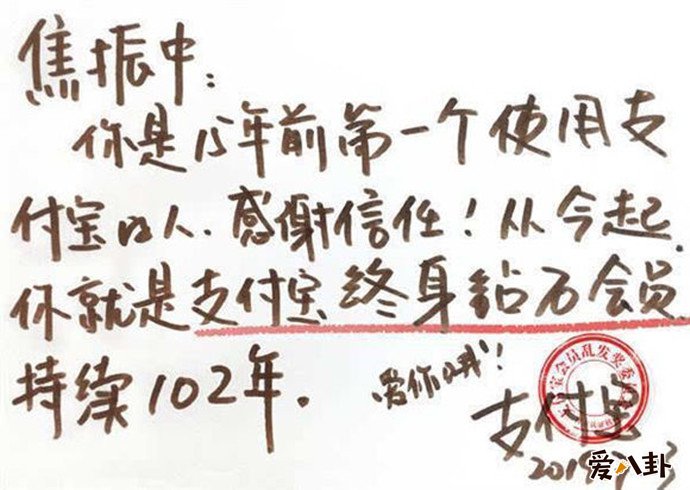 焦振中:
你是15年前第一个使用支
付宝的人.感谢信任!从今起.
你就是支付宝终身钻石会员.
持续102年.
爱你哦!
支付宝会员乱发奖委员会
支付宝
爱八卦